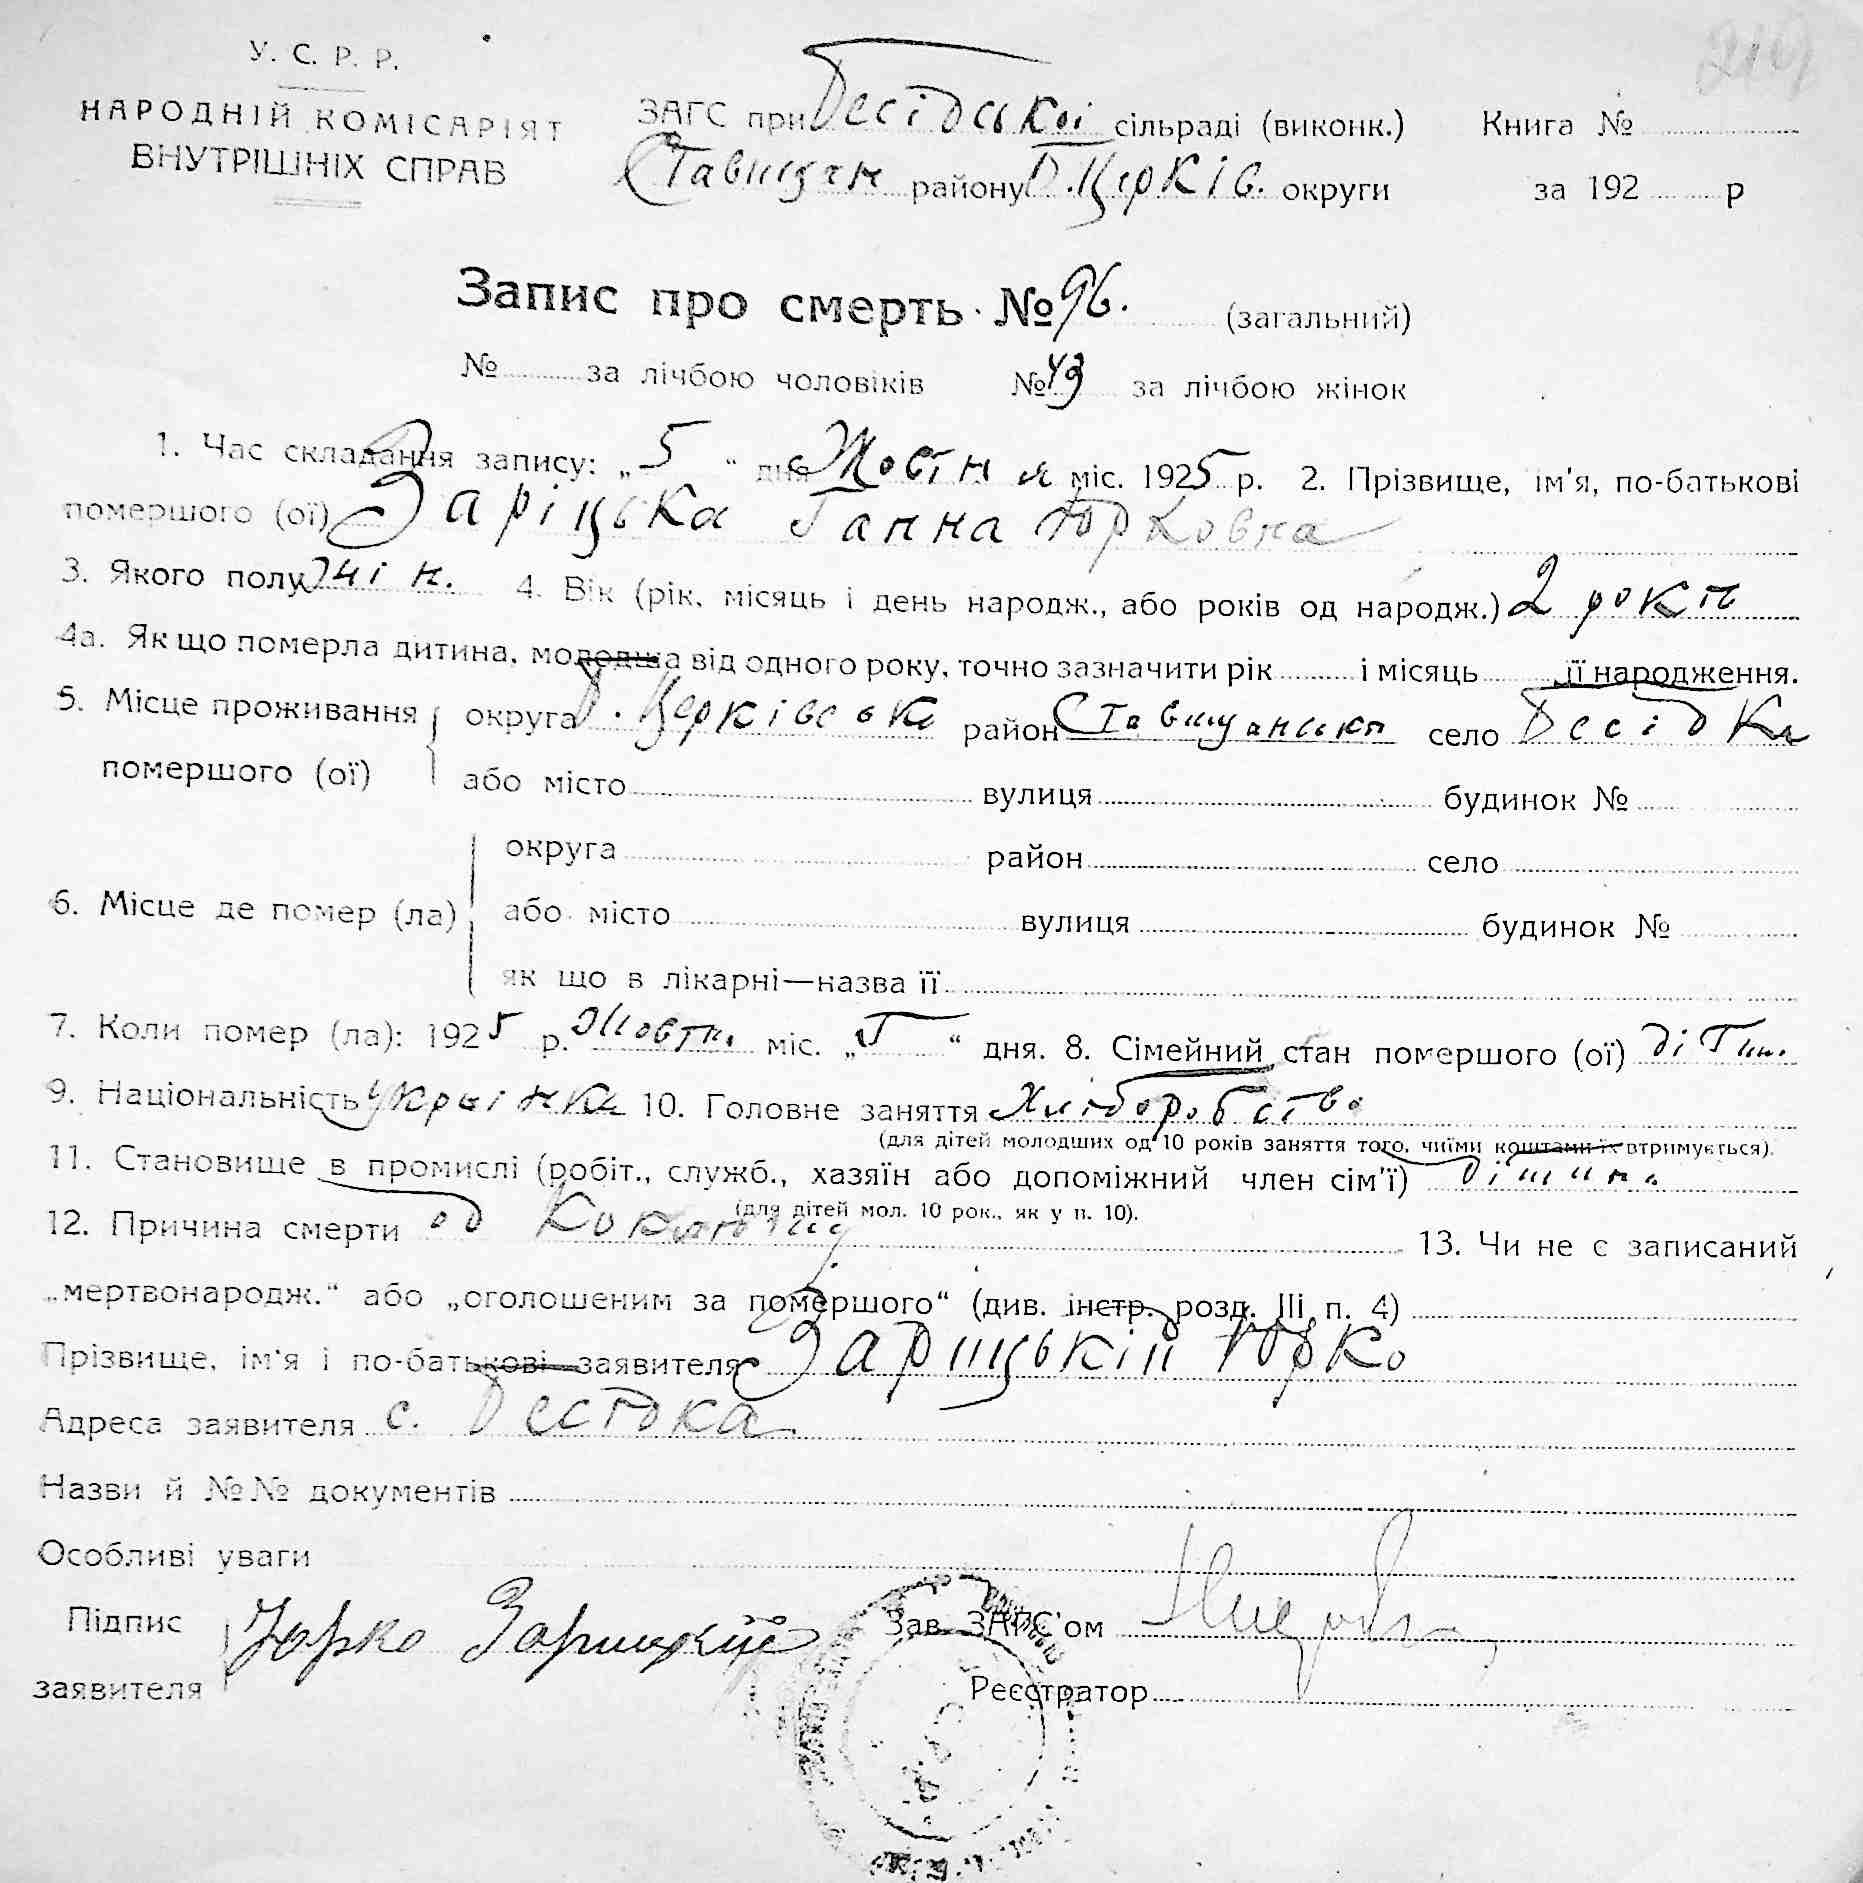 219
У. С. Р. Р.
НАРОДНІЙ КОМІСАРІЯТ
ВНУТРІШНІХ СПРАВ
ЗАГС при Бесідської сільраді (виконк.)
Ставищан району Б. Церків. округи
Книга №
за 192 р
Запис про смерть № 96. (загальний)
№ за лічбою чоловіків № 49 за лічбою жінок
1. Час складання запису: „5“ дня Жовтня міс. 1925 р. 2. Прізвище, ім'я, по-батькові
помершого (ої) Заріцька Ганна Юрковна
3. Якого полу жін. 4. Вік (рік, місяць і день народж., або років од народж.) 2 років
4а. Як що померла дитина, молодша від одного року, точно зазначити рік і місяць її народження.
5. Місце проживання помершого (ої) округа Б. Церківська район Ставищанськ село Бесідка
або місто вулиця будинок №
6. Місце де помер (ла) округа район село
або місто вулиця будинок №
як що в лікарні—назва її
7. Коли помер (ла): 1925 р. Жовтн. міс. „5“ дня. 8. Сімейний стан помершого (ої) дітин.
9. Національність українка 10. Головне заняття Хліборобство
(для дітей молодших од 10 років заняття того, чиїми коштами їх втримується).
11. Становище в промислі (робіт., служб., хазяїн або допоміжний член сім'ї) дітина
(для дітей мол. 10 рок., як у п. 10).
12. Причина смерти од Коклюшу 13. Чи не є записаний
„мертвонародж.“ або „оголошеним за помершого“ (див. інстр. розд. III, п. 4)
Прізвище, ім'я і по-батькові заявителя Зарицький Юрко
Адреса заявителя с. Бесідка
Назви й №№ документів
Особливі уваги
Підпис заявителя Юрко Зарицкій
Зав. ЗАГС'ом
Реєстратор